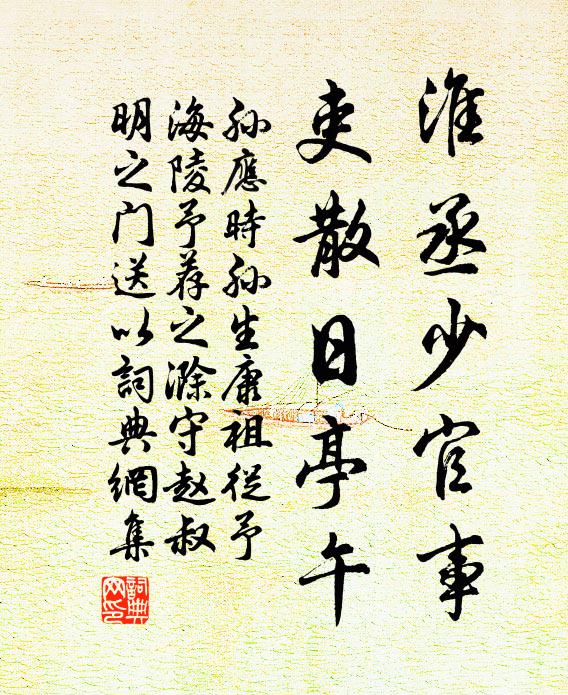 淮丞少官事
吏散日亭午
孙應時孙生康祖從予
海陵予荐之滁守赵叔
明之门送以詞典網集
詞典